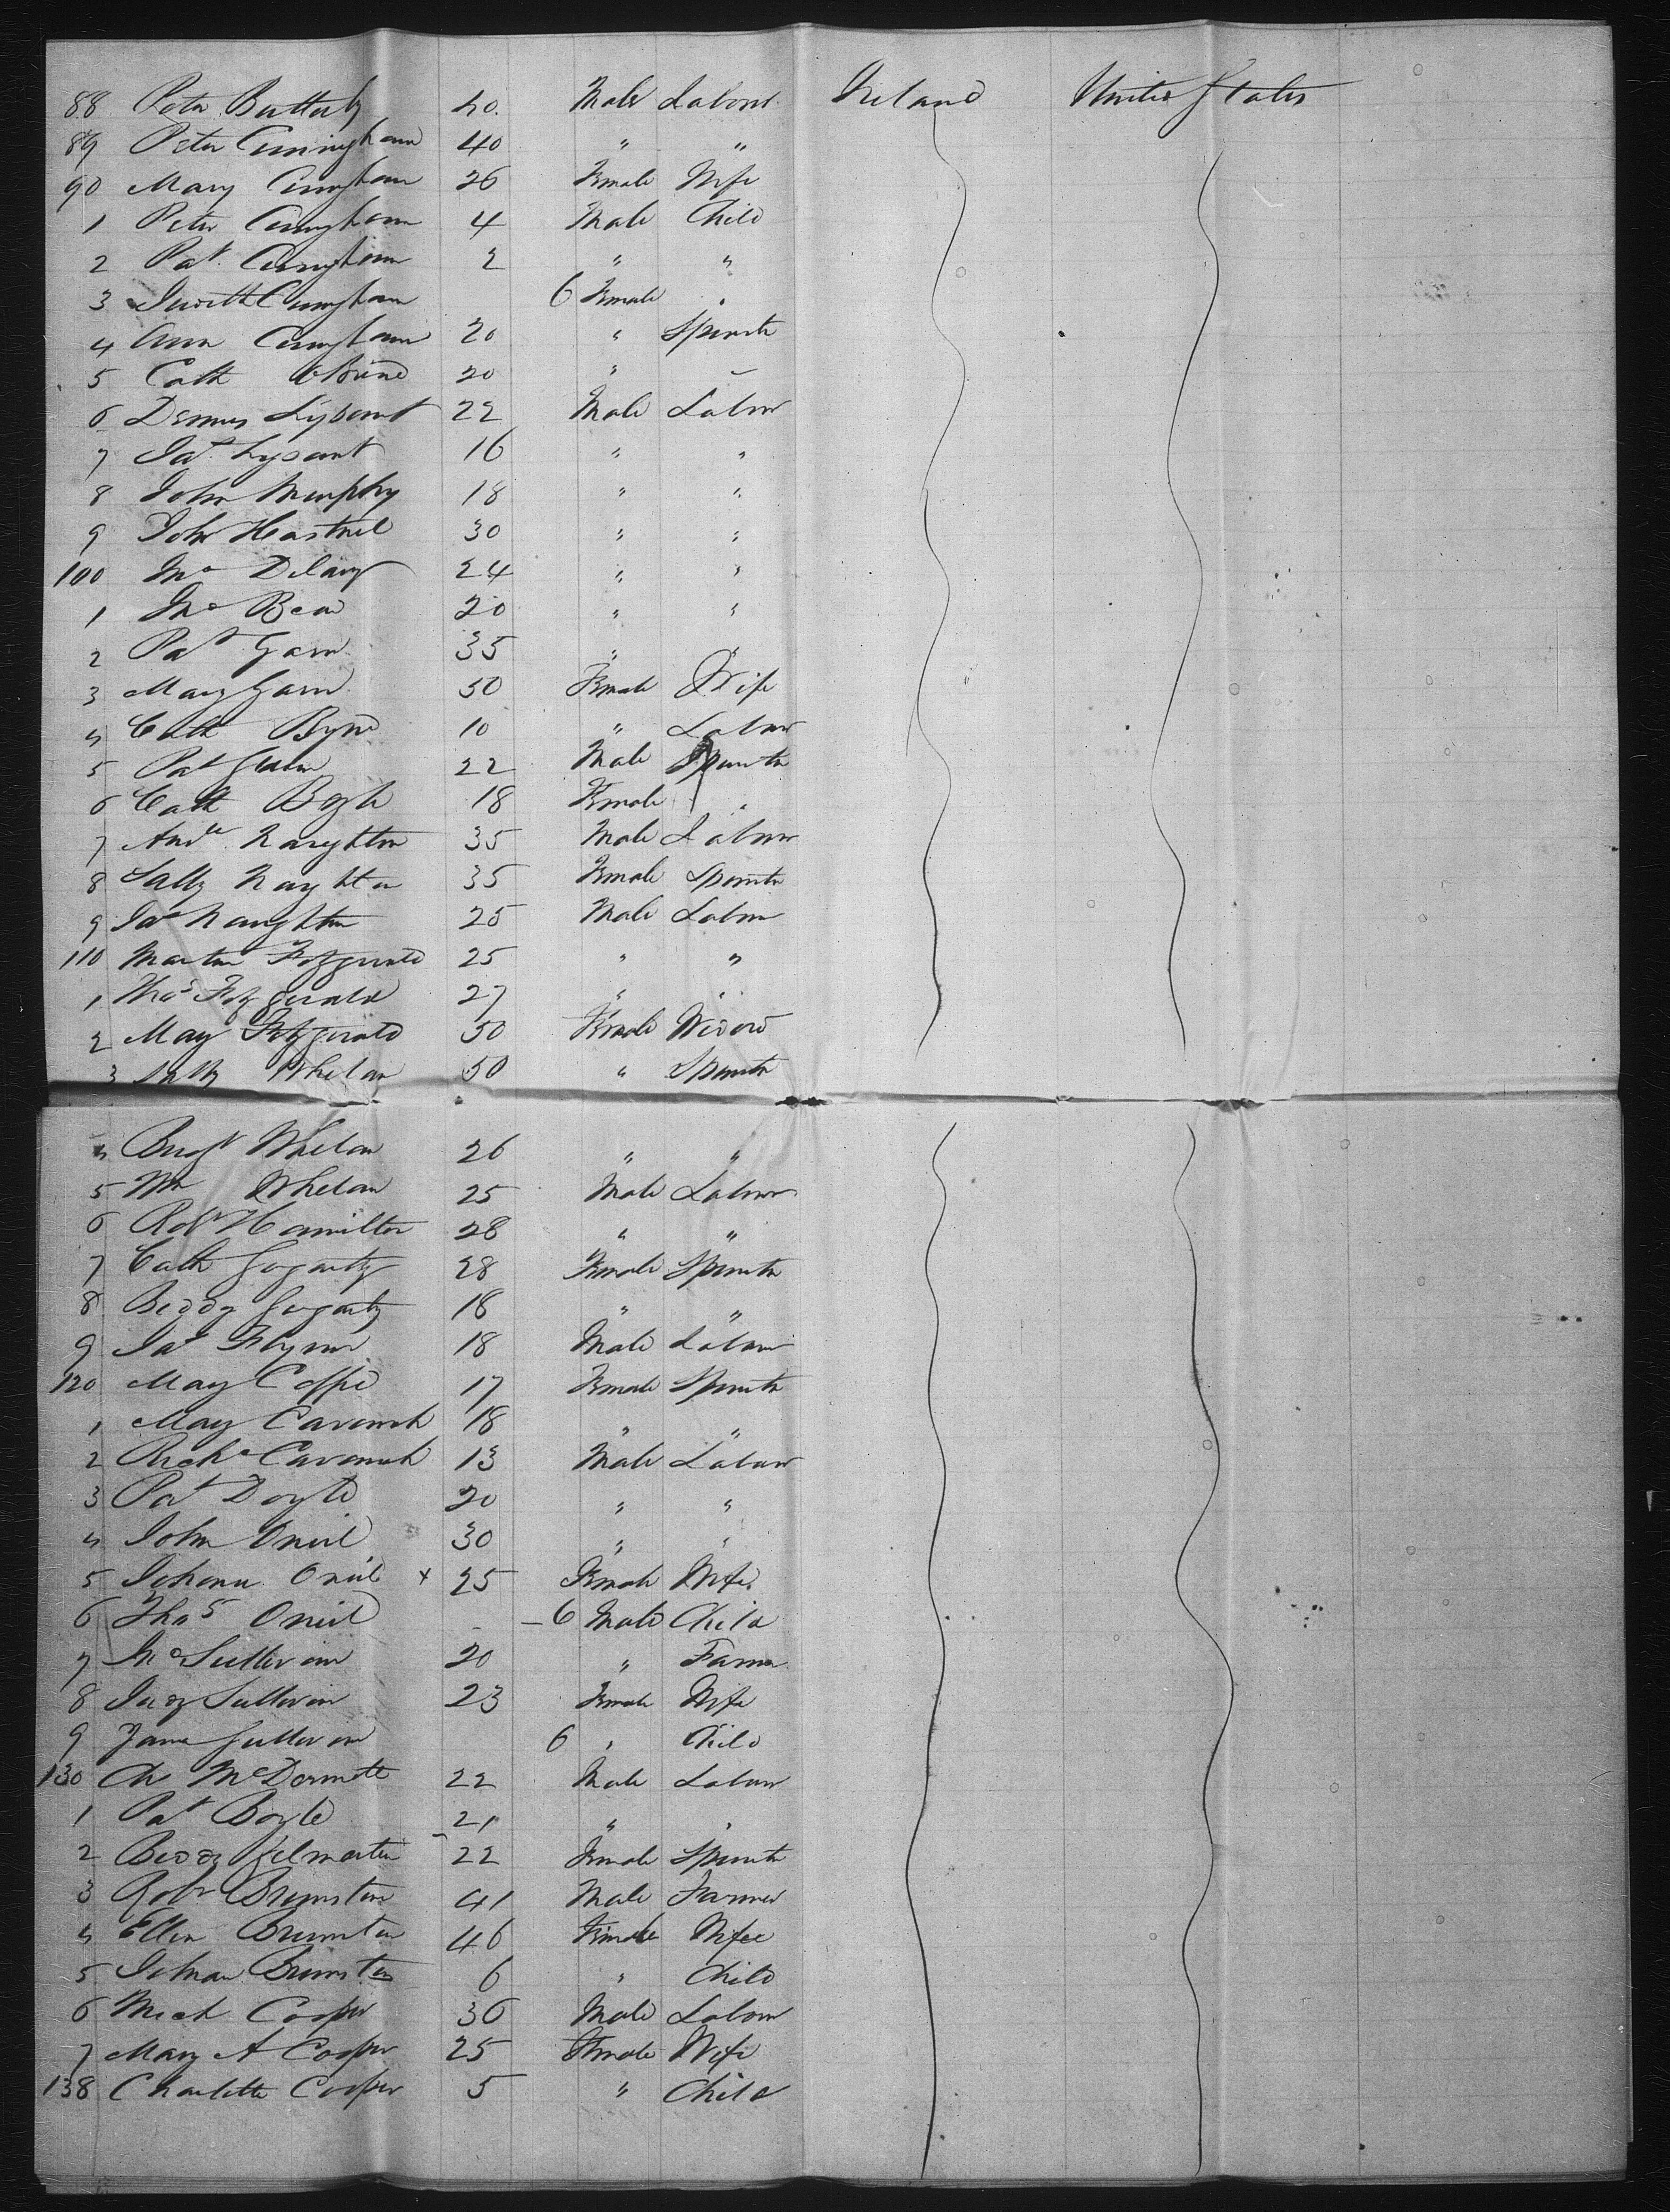 88 Peter Butterly 40. Male Labour Ireland United States
89 Peter Cunningham 40 " "
90 Mary Cunngham 26 Female Wife
1 Peter Cunngham 4 Male Child
2 Pat Cunngham 2 " "
3 Judith Cunngham 6 Female "
4 Ann Cunngham 20 " Spinstr
5 Cath 20 "
6 Dennis 22 Male Labour
7 Jas Lysant 16 " "
8 John Murphy 18 " "
9 John 30 " "
100 Delany 24 " "
1 20 " "
2 Pat Garn 35 " "
3 Mary Garn 50 Female Wife
4 Cath Byrne 10 " Labour
5 Pat 22 Male Spinstr
6 Cath Boyle 18 Female "
7 Andw Naughton 35 Male Labour
8 Sally Naughton 35 Female Spinstr
9 Jas Naughton 25 Male Labour
110 Martin Fitzgerald 25 " "
1 Thos Fitzgerald 27 " "
2 Mary Fitzgerald 50 Female Widow
3 Whelan 50 " Spinstr
4 Whelan 26 " "
5 Wm Whelan 25 Male Labour
6 Robt Hamilton 28 " "
7 Cath Gogarty 28 Female Spinstr
8 Biddy Gogarty 18 " "
9 Jas Flynn 18 Male Labour
120 Mary 17 Female Spinstr
1 Mary Cavanah 18 " "
2 Richd Cavanah 13 Male Labour
3 Pat Doyle 20 " "
4 John Oneil 30 " "
5 Johanna Oneil x 25 Female Wife
6 Thos Oneil - 6 Male Child
7 Sullivan 20 " Farmer
8 Judy Sullivan 23 Female Wife
9 Jane Sullivan 6 " Child
130 Chs McDermott 22 Male Labour
1 Pat Boyle 21 " "
2 Biddy Kilmartin 22 Female Spinstr
3 Robt Brumston 41 Male Farmer
4 Ellen Brumston 46 Female Wife
5 Johnan Brumston 6 " Child
6 Mich Cooper 36 Male Labour
7 Mary A Cooper 25 Female Wife
138 Charlotte Cooper 5 " Child